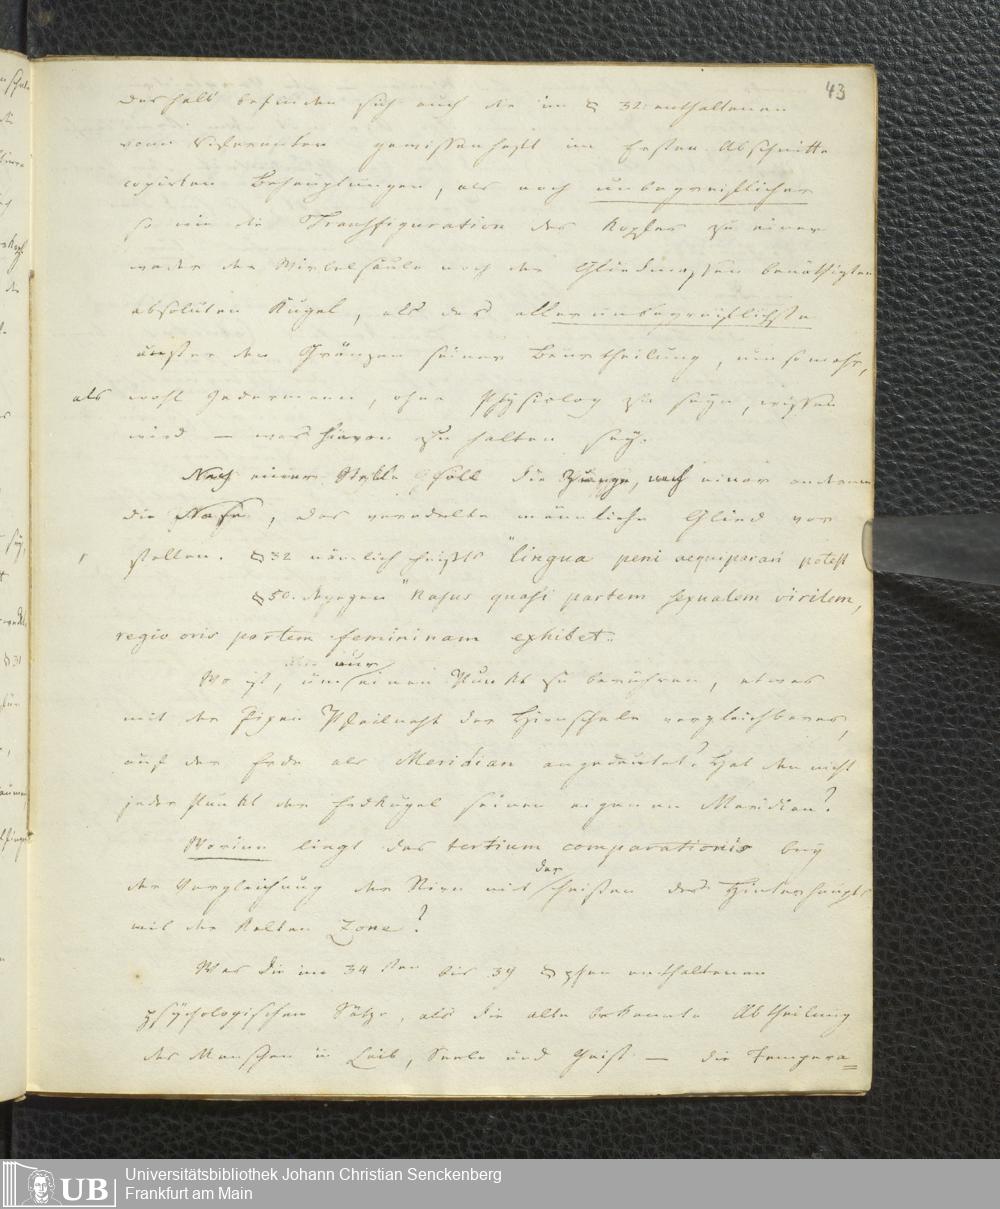 43
deshalb befinden sich auch die im § 32 enthaltenen
vom Referenten gewissenhaft im Ersten Abschnitte
copirten Behauptungen, als noch unbegreiflicher
so wie die Transfiguration des Kopfes zu einer
weder der Wirbelsäule noch der Gliedmassen benöthigten
absoluten Kugel, als das allerunbegreiflichste
ausser den Gränzen seiner Beurtheilung, um so mehr,
als wohl Jedermann, ohne Physiolog zu seyn, wissen
wird — was hievon zu halten sey.
Nach einer Stelle soll die Zunge, nach einer anderen
die Nase, das veredelte männliche Glied vor
stellen. § 32 nämlich heißts "lingua peni aequiparari potest
§ 50. dagegen "Nasus quasi partem sexualem virilem,
regio oris partem femininam exhibet".
Wo ist, um nur einen Punkt zu berühren, etwas
mit der Pfeilnaht der Hirnschale vergleichbares,
auf der Erde als Meridian angedeutet? Hat den nicht
jeder Punkt der Erdkugel seinen eigenen Meridian?
Worinn liegt das tertium comparationis bey
der Vergleichung der Stirn mit der heißen des Hinterhaupts
mit der kalten Zone?
Was die im 34 sten bis 39 § phen enthaltenen
psychologischen Sätze, als die alte bekannte Abtheilung
des Menschen in Leib, Seele und Geist — die Tempera=
UB
Universitätsbibliothek Johann Christian Senckenberg
Frankfurt am Main